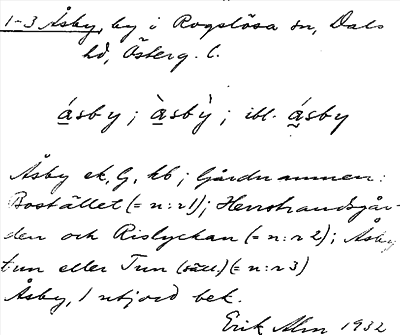 1-3 Åsby, by i Rogslösa sn, Dals
hd, Österg. l.
á̱sby; à̱sbỳ; ibl. á̱sby
Åsby ek, G, kb; Gårdnamnen:
Bostället (= n:r 1); Herrstrandsgår-
den och Rislyckan (= n:r 2); Åsby
tun eller Tun (säll.) (= n:r 3)
Åsby, 1 utjord bek.
Erik Alm 1932